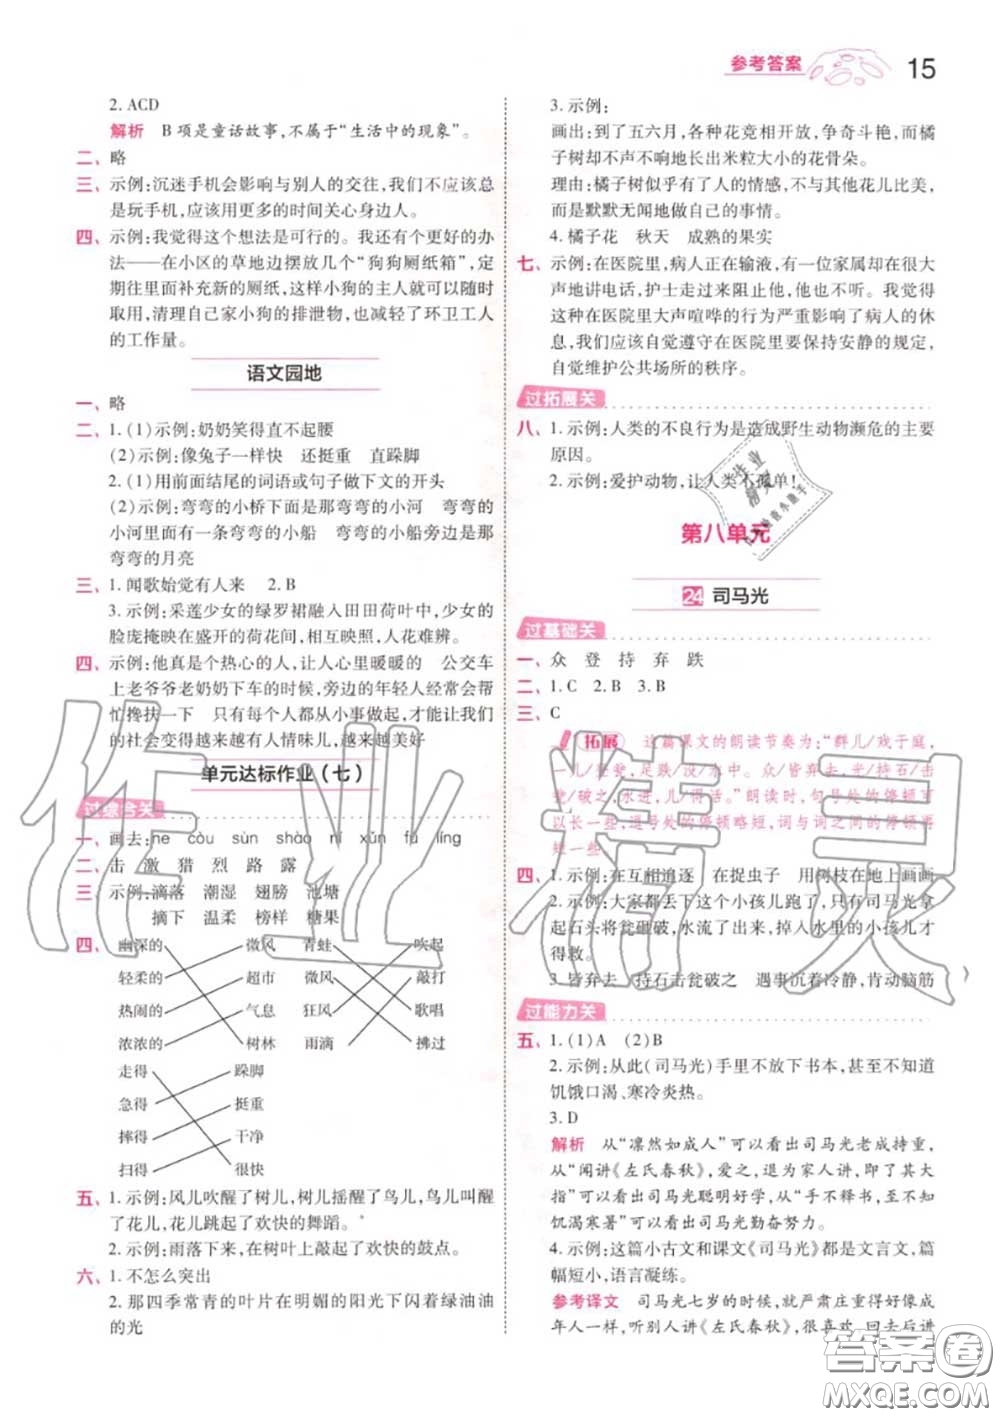 参考答案
15
2. ACD
解析 B 项是童话故事,不属于“生活中的现象”。
二、略
三、示例:沉迷手机会影响与别人的交往,我们不应该总
是玩手机,应该用更多的时间关心身边人。
四、示例:我觉得这个想法是可行的。我还有更好的办
法——在小区的草地边摆放几个“狗狗厕纸箱”,定
期往里面补充新的厕纸,这样小狗的主人就可以随时
取用,清理自己家小狗的排泄物,也减轻了环卫工人
的工作量。
语文园地
一、略
二、1. (1)示例:奶奶笑得直不起腰
(2)示例:像兔子一样快 还挺重 直跺脚
2. (1)用前面结尾的词语或句子做下文的开头
(2)示例:弯弯的小桥下面是那弯弯的小河 弯弯的
小河里面有一条弯弯的小船 弯弯的小船旁边是那
弯弯的月亮
三、1. 闻歌始觉有人来 2. B
3. 示例:采莲少女的绿罗裙融入田田荷叶中,少女的
脸庞掩映在盛开的荷花间,相互映照,人花难辨。
四、示例:他真是个热心的人,让人心里暖暖的 公交车
上老爷爷老奶奶下车的时候,旁边的年轻人经常会帮
忙搀扶一下 只有每个人都从小事做起,才能让我们
的社会变得越来越有人情味儿,越来越美好
单元达标作业(七)
一、画去:he còu sùn shào ní xún fú líng
二、击 激 猎 烈 路 露
三、示例:滴落 潮湿 翅膀 池塘
摘下 温柔 榜样 糖果
四、幽深的 微风 青蛙 吹起
轻柔的 超市 微风 敲打
热闹的 气息 狂风 歌唱
浓浓的 树林 雨滴 拂过
走得 跺脚
急得 挺重
摔得 干净
扫得 很快
五、1. 示例:风儿吹醒了树儿,树儿摇醒了鸟儿,鸟儿叫醒
了花儿,花儿跳起了欢快的舞蹈。
2. 示例:雨落下来,在树叶上敲起了欢快的鼓点。
六、1. 不怎么突出
2. 那四季常青的叶片在明媚的阳光下闪着绿油油
的光
3. 示例:
画出:到了五六月,各种花竞相开放,争奇斗艳,而橘
子树却不声不响地长出米粒大小的花骨朵。
理由:橘子树似乎有了人的情感,不与其他花儿比美,
而是默默无闻地做自己的事情。
4. 橘子花 秋天 成熟的果实
七、示例:在医院里,病人正在输液,有一位家属却在很大
声地讲电话,护士走来阻止他,他也不听。我觉得
这种在医院里大声喧哗的行为严重影响了病人的休
息,我们应该自觉遵守在医院里要保持安静的规定,
自觉维护公共场所的秩序。
过拓展关
八、1. 示例:人类的不良行为是造成野生动物濒危的主要
原因。
2. 示例:爱护动物,让人类不孤单!
第八单元
24 司马光
过基础关
一、众 登 持 弃 跌
二、1. C 2. B 3. B
三、C
拓展 这篇课文的朗读节奏为:“群儿/戏于庭,
一儿/登瓮,足跌/没水中。众/皆弃去,光/持石/击
瓮/破之,水迸,儿/得活。”朗读时,句号处的停顿可
以长一些,逗号处的停顿略短,词与词之间的停顿再
短一些
四、1. 示例:在互相追逐 在捉虫子 用树枝在地上画画
2. 示例:大家都丢下这个小孩儿跑了,只有司马光拿
起石头将瓮破破,水流了出来,掉入水里的小孩儿才
得救。
3. 皆弃去 持石击瓮破之 遇事沉着冷静,肯动脑筋
过能力关
五、1. (1)A (2)B
2. 示例:从此(司马光)手里不放下书本,甚至忘记了
饥饿口渴、寒冷炎热。
3. D
解析 从“凛然如成人”可以看出司马光老成持重,
从“闻讲《左氏春秋》,爱之,退为家人讲,即了其大
指”可以看出司马光聪明好学,从“手不释书,至不知
饥渴寒暑”可以看出司马光勤奋努力。
4. 示例:这篇小古文和课文《司马光》都是文言文,篇
幅短小,语言凝练。
参考译文 司马光七岁的时候,就严肃庄重得好像成
年人一样,听别人讲《左氏春秋》,很喜欢,回去后进
作业精灵
答案圈
MXQE.COM